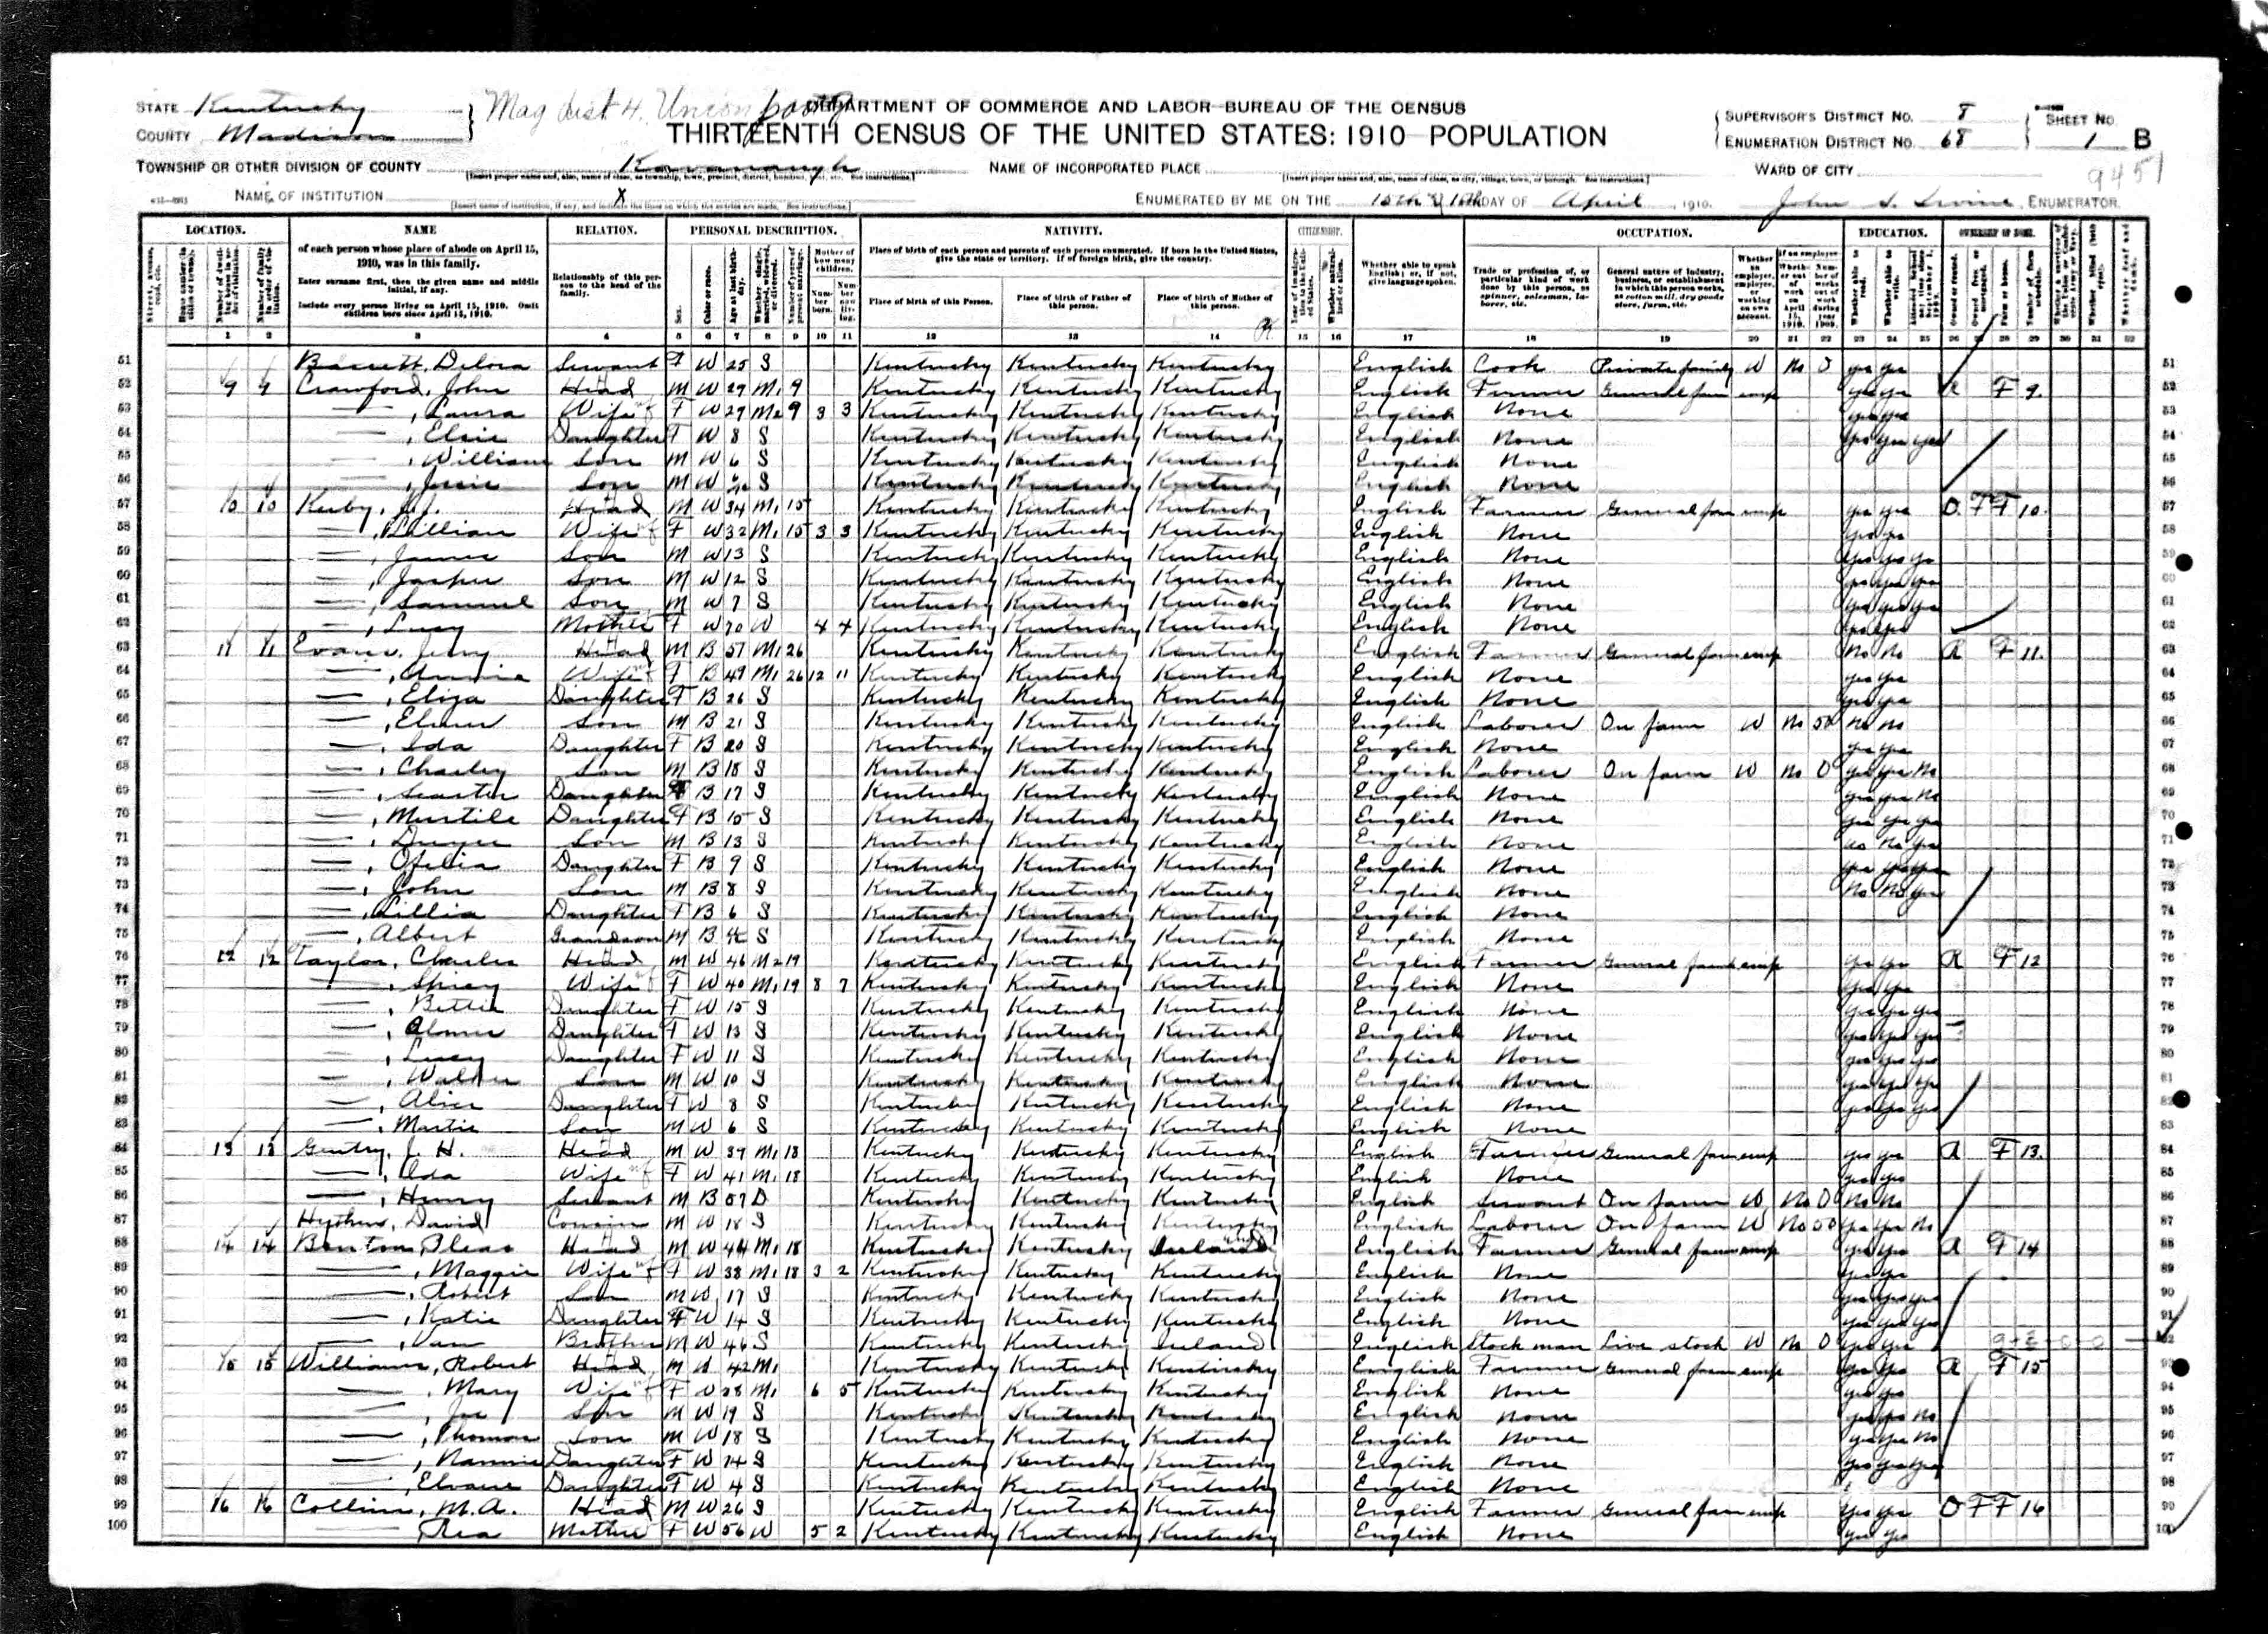 STATE Kentucky
COUNTY Madison
Mag dist 4. Union
DEPARTMENT OF COMMERCE AND LABOR-BUREAU OF THE CENSUS
THIRTEENTH CENSUS OF THE UNITED STATES: 1910 POPULATION
SUPERVISOR'S DISTRICT NO. 8
ENUMERATION DISTRICT NO. 68
SHEET NO. 1 B
9451
TOWNSHIP OR OTHER DIVISION OF COUNTY Kavanaugh
NAME OF INCORPORATED PLACE
WARD OF CITY
NAME OF INSTITUTION X
ENUMERATED BY ME ON THE 15th & 16th DAY OF April, 1910.
John ENUMERATOR.
LOCATION. NAME RELATION. PERSONAL DESCRIPTION. NATIVITY. CITIZENSHIP. OCCUPATION. EDUCATION. OWNERSHIP OF HOME.
of each person whose place of abode on April 15, 1910, was in this family.
Enter surname first, then the given name and middle initial, if any.
Include every person living on April 15, 1910. Omit children born since April 15, 1910.
Relationship of this person to the head of the family.
Place of birth of each person and parents of each person enumerated. If born in the United States, give the state or territory. If of foreign birth, give the country.
Place of birth of this Person. Place of birth of Father of this person. Place of birth of Mother of this person.
Whether able to speak English; or, if not, give language spoken.
Trade or profession of, or particular kind of work done by this person, as spinner, salesman, laborer, etc.
General nature of industry, business, or establishment in which this person works, as cotton mill, dry goods store, farm, etc.
1 2 3 4 5 6 7 8 9 10 11 12 13 14 15 16 17 18 19 20 21 22 23 24 25 26 27 28 29 30 31 32
51 Servant F W 25 S Kentucky Kentucky Kentucky English Cook Private family W No 0 yes yes 51
52 9 9 Crawford, John Head M W 29 M1 9 Kentucky Kentucky Kentucky English Farmer General farm emp yes yes R F 9 52
53 —, Laura Wife F W 29 M2 9 3 3 Kentucky Kentucky Kentucky English None yes yes 53
54 —, Elsie Daughter F W 8 S Kentucky Kentucky Kentucky English None yes yes yes 54
55 —, William Son M W 6 S Kentucky Kentucky Kentucky English None 55
56 —, Son M W S Kentucky Kentucky Kentucky English None 56
57 10 10 Kuby, J.J. Head M W 34 M1 15 Kentucky Kentucky Kentucky English Farmer General farm emp yes yes O F F 10 57
58 —, Lillian Wife F W 32 M1 15 3 3 Kentucky Kentucky Kentucky English None yes yes 58
59 —, Son M W 13 S Kentucky Kentucky Kentucky English None yes yes yes 59
60 —, Jasper Son M W 12 S Kentucky Kentucky Kentucky English None yes yes yes 60
61 —, Samuel Son M W 7 S Kentucky Kentucky Kentucky English None yes yes yes 61
62 —, Lucy Mother F W 70 W 4 4 Kentucky Kentucky Kentucky English None yes yes 62
63 11 11 Evans, Jerry Head M B 57 M1 26 Kentucky Kentucky Kentucky English Farmer General farm emp No No R F 11 63
64 —, Annie Wife F B 49 M1 26 12 11 Kentucky Kentucky Kentucky English None yes yes 64
65 —, Eliza Daughter F B 26 S Kentucky Kentucky Kentucky English None yes yes 65
66 —, Elmer Son M B 21 S Kentucky Kentucky Kentucky English Laborer On farm W No 50 No No 66
67 —, Ida Daughter F B 20 S Kentucky Kentucky Kentucky English None yes yes 67
68 —, Charley Son M B 18 S Kentucky Kentucky Kentucky English Laborer On farm W No 0 yes yes No 68
69 —, Daughter F B 17 S Kentucky Kentucky Kentucky English None yes yes No 69
70 —, Daughter F B 15 S Kentucky Kentucky Kentucky English None yes yes yes 70
71 —, Son M B 13 S Kentucky Kentucky Kentucky English None No No yes 71
72 —, Ofelia Daughter F B 9 S Kentucky Kentucky Kentucky English None yes yes yes 72
73 —, John Son M B 8 S Kentucky Kentucky Kentucky English None No No yes 73
74 —, Lillia Daughter F B 6 S Kentucky Kentucky Kentucky English None 74
75 —, Albert Grandson M B S Kentucky Kentucky Kentucky English None 75
76 12 12 Taylor, Charles Head M W 46 M2 19 Kentucky Kentucky Kentucky English Farmer General farm emp yes yes R F 12 76
77 —, Spicy Wife F W 40 M1 19 8 7 Kentucky Kentucky Kentucky English None yes yes 77
78 —, Bettie Daughter F W 15 S Kentucky Kentucky Kentucky English None yes yes yes 78
79 —, Daughter F W 13 S Kentucky Kentucky Kentucky English None yes yes yes 79
80 —, Lucy Daughter F W 11 S Kentucky Kentucky Kentucky English None yes yes yes 80
81 —, Walker Son M W 10 S Kentucky Kentucky Kentucky English None yes yes yes 81
82 —, Alice Daughter F W 8 S Kentucky Kentucky Kentucky English None yes yes yes 82
83 —, Son M W 6 S Kentucky Kentucky Kentucky English None 83
84 13 13 Gentry, J. H. Head M W 39 M1 18 Kentucky Kentucky Kentucky English Farmer General farm emp yes yes R F 13 84
85 —, Ida Wife F W 41 M1 18 Kentucky Kentucky Kentucky English None yes yes 85
86 —, Henry Servant M B 57 D Kentucky Kentucky Kentucky English Servant On farm W No 0 No No 86
87 David Cousin M W 18 S Kentucky Kentucky Kentucky English Laborer On farm W No 50 yes yes No 87
88 14 14 Benton, Pleas Head M W 44 M1 18 Kentucky Kentucky Ireland English Farmer General farm emp yes yes R F 14 88
89 —, Maggie Wife F W 38 M1 18 3 2 Kentucky Kentucky Kentucky English None yes yes 89
90 —, Robert Son M W 17 S Kentucky Kentucky Kentucky English None yes yes yes 90
91 —, Katie Daughter F W 14 S Kentucky Kentucky Kentucky English None yes yes yes 91
92 —, Van Brother M W 46 S Kentucky Kentucky Ireland English Stock man Live stock W No 0 yes yes 92
93 15 15 Williams, Robert Head M W 42 M1 Kentucky Kentucky Kentucky English Farmer General farm emp yes yes R F 15 93
94 —, Mary Wife F W 38 M1 6 5 Kentucky Kentucky Kentucky English None yes yes 94
95 —, Joe Son M W 19 S Kentucky Kentucky Kentucky English None yes yes No 95
96 —, Thomas Son M W 18 S Kentucky Kentucky Kentucky English None yes yes No 96
97 —, Nannie Daughter F W 14 S Kentucky Kentucky Kentucky English None yes yes yes 97
98 —, Daughter F W 4 S Kentucky Kentucky Kentucky English None 98
99 16 16 Collins, M.A. Head M W 26 S Kentucky Kentucky Kentucky English Farmer General farm emp yes yes O F F 16 99
100 —, Mother F W 56 W 5 2 Kentucky Kentucky Kentucky English None yes yes 100